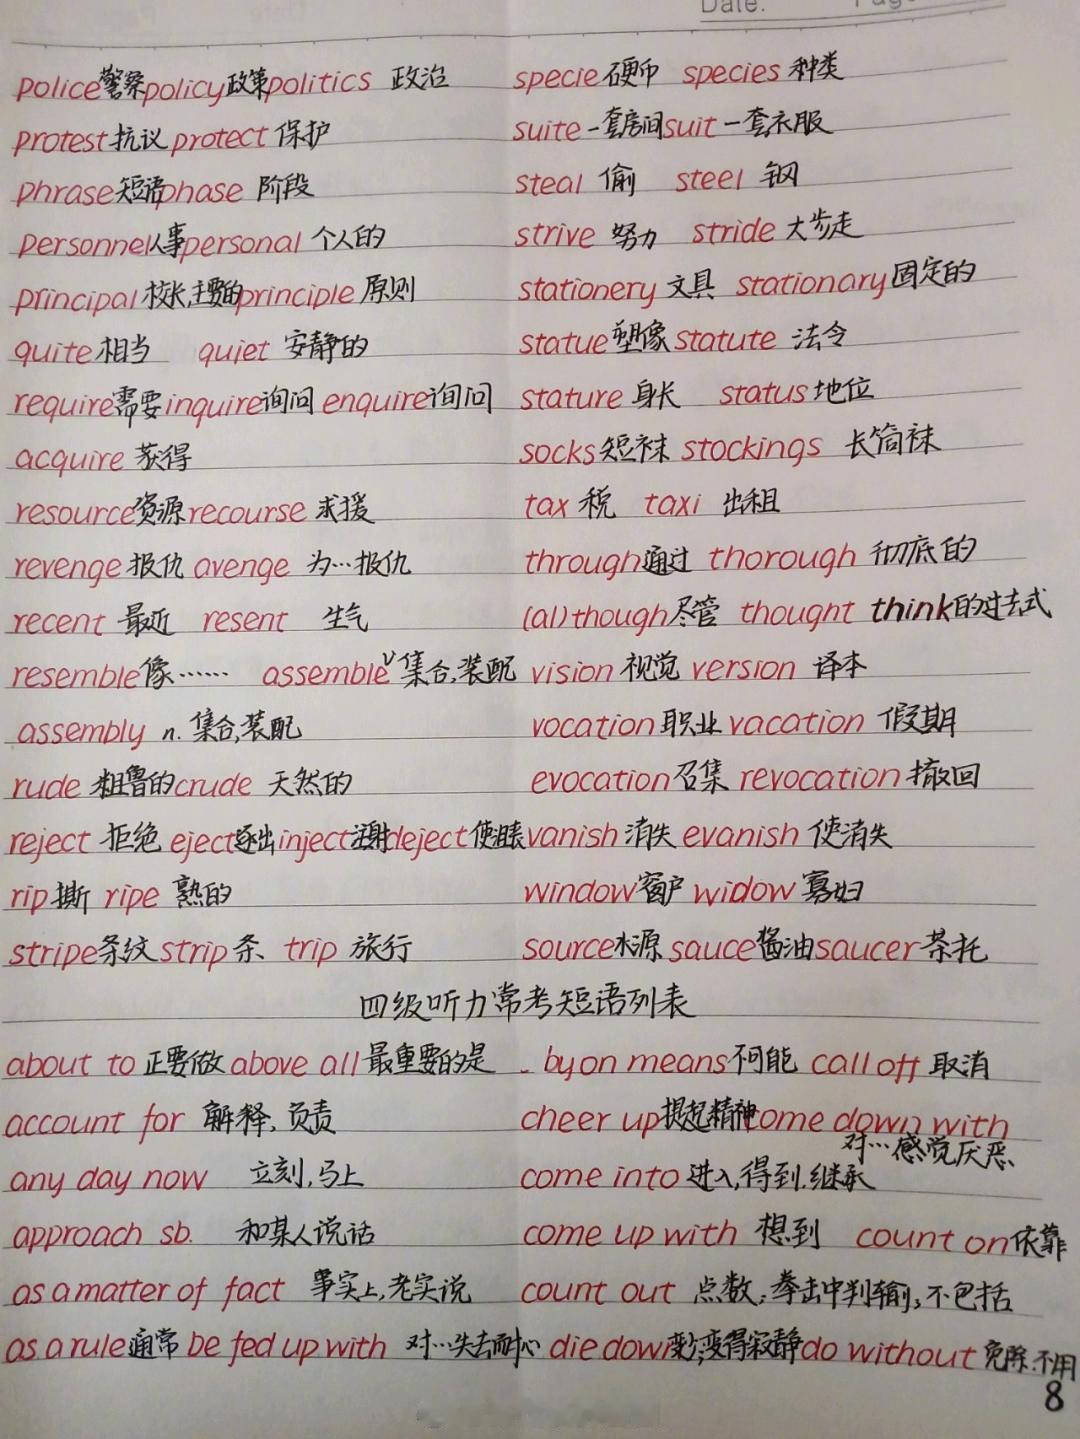 Date.
police警察policy政策politics 政治
protest抗议protect保护
phrase短语phase 阶段
personnel人事personal 个人的
principal校长,主要的principle原则
quite相当 quiet 安静的
require需要inquire询问enquire询问
acquire 获得
resource资源recourse 求援
revenge报仇avenge 为…报仇
recent 最近 resent 生气
resemble像…… assemble v 集合,装配
assembly n. 集合,装配
rude 粗鲁的crude 天然的
reject 拒绝 eject逐出inject注射deject使沮丧
rip撕 ripe 熟的
stripe条纹strip条 trip 旅行
specie硬币 species种类
suite一套房间suit一套衣服
steal 偷 steel 钢
strive 努力 stride 大步走
stationery 文具 stationary固定的
statue塑像statute 法令
stature 身长 status地位
socks短袜stockings 长筒袜
tax 税 taxi 出租
through通过 thorough 彻底的
(al)though尽管 thought think的过去式
vision 视觉 version 译本
vocation职业vacation 假期
evocation召集revocation撤回
vanish消失evanish 使消失
window窗户widow寡妇
source水源sauce酱油saucer茶托
四级听力常考短语列表
about to 正要做above all最重要的是
account for 解释,负责
any day now 立刻,马上
approach sb. 和某人说话
as a matter of fact 事实上,老实说
as a rule通常be fed up with 对…失去耐心
by on means不可能 call off 取消
cheer up提起精神come down with
对…感觉厌恶
come into 进入,得到,继承
come up with 想到 count on依靠
count out 点数;拳击中判输;不包括
die down变少,变得寂静do without 免除,不用
8